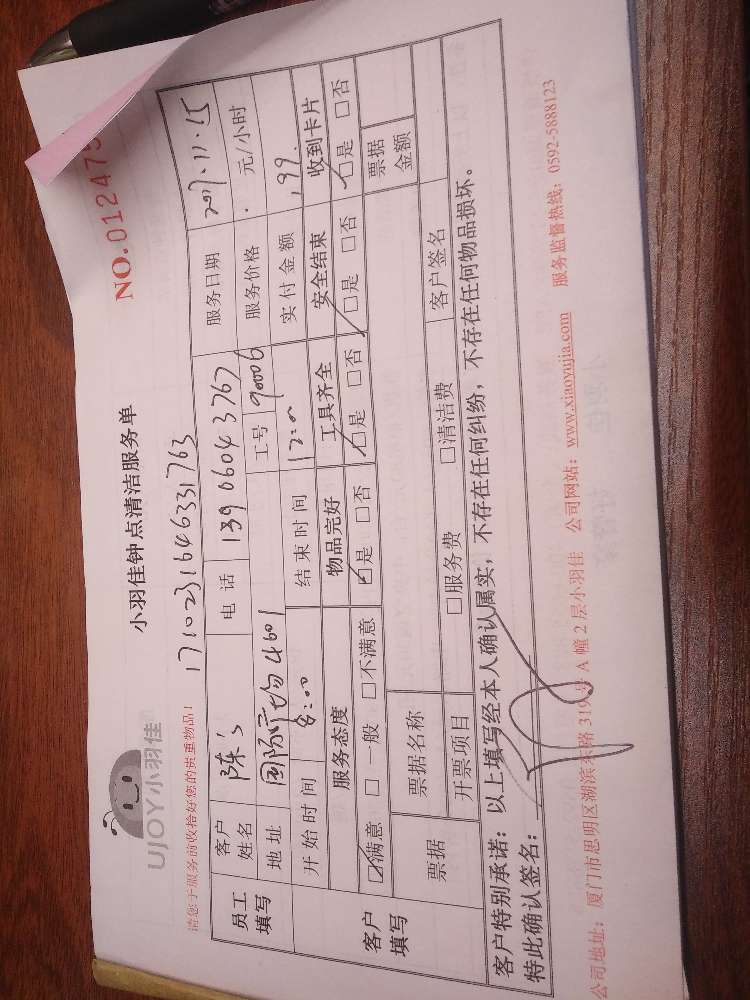 UJOY小羽佳
小羽佳钟点清洁服务单
NO.012475
请您于服务前收拾好您的贵重物品！
171023164633 1763
员工填写
客户姓名 陈 电话 139 0604 3767 服务日期 2017.11.15
地址 国际 4601 工号 90006 服务价格 . 元/小时
开始时间 8:00 结束时间 12:00 实付金额 199.
客户填写
服务态度 物品完好 工具齐全 安全结束 收到卡片
☑满意 □一般 □不满意 ☑是 □否 ☑是 □否 ☑是 □否 ☑是 □否
票据 票据名称 票据金额
开票项目 □服务费 □清洁费 客户签名
客户特别承诺：以上填写经本人确认属实，不存在任何纠纷，不存在任何物品损坏。
特此确认签名：
公司地址：厦门市思明区湖滨东路319号A幢2层小羽佳 公司网站：www.xiaoyujia.com 服务监督热线：0592-5888123